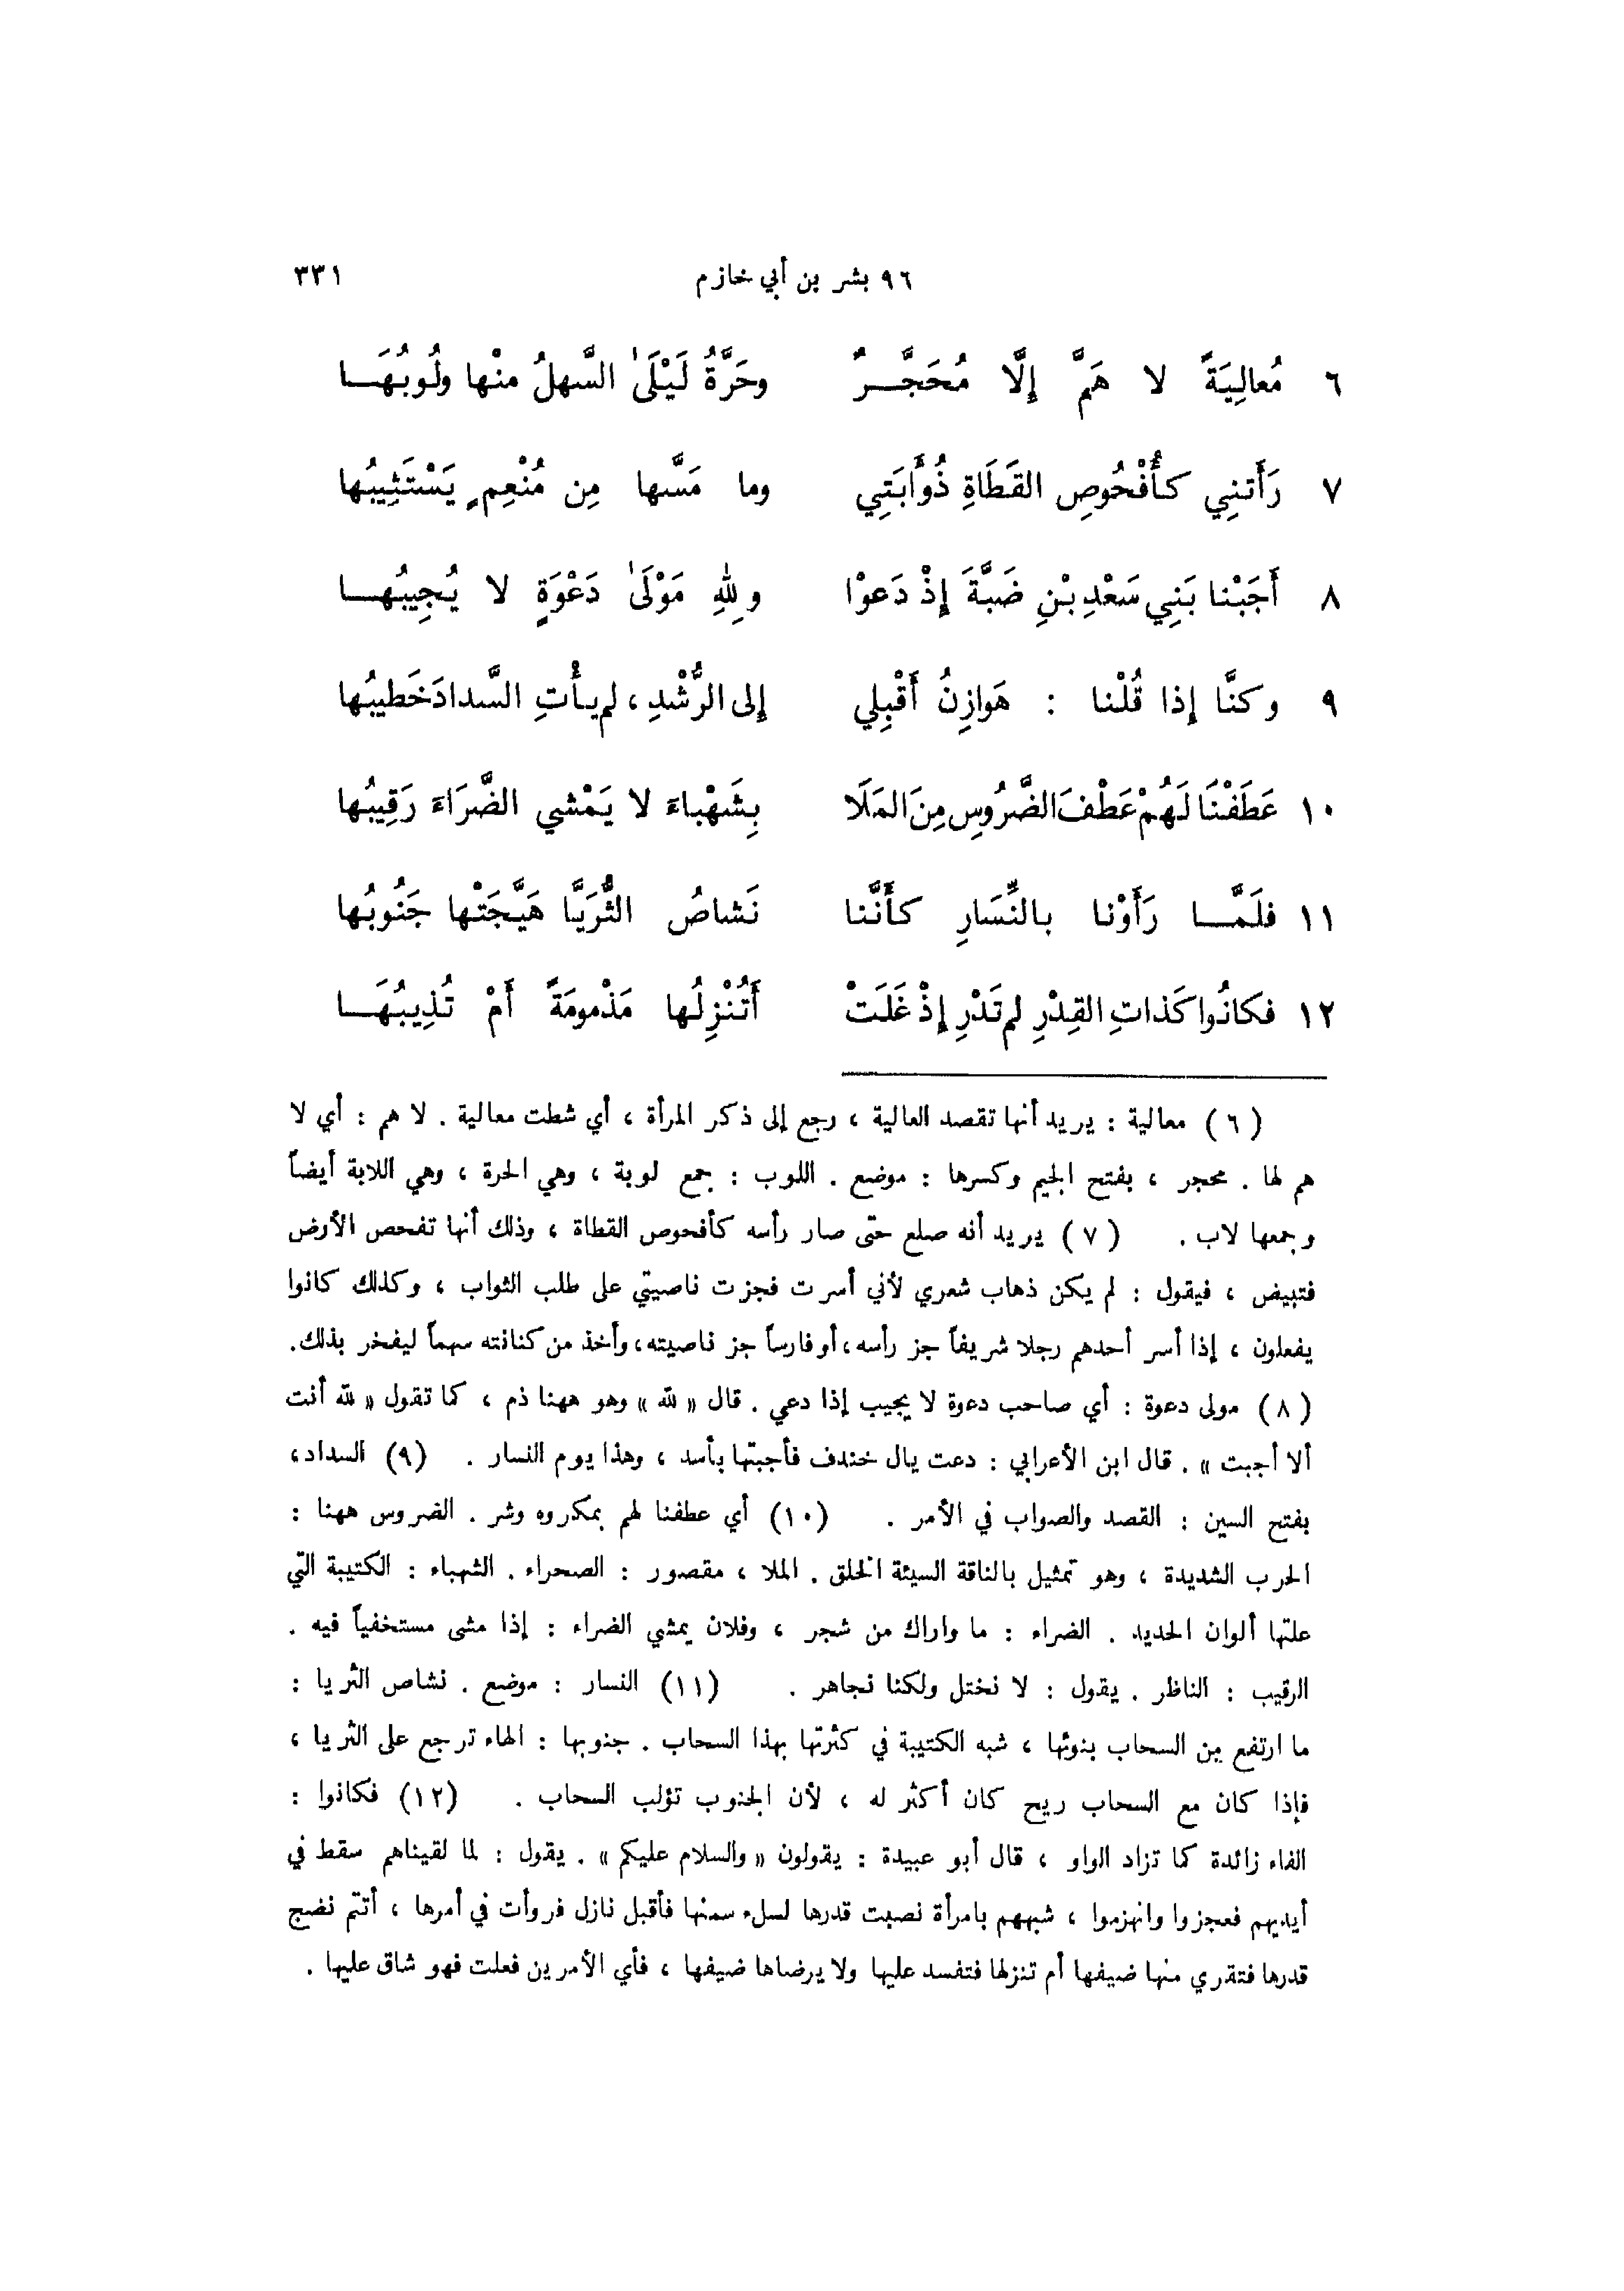 ٩٦ بشر بن أبي خازم ٣٣١
٦ مُعالِيَةً لا هَمَّ إِلَّا مُحَجَّرٌ وحَرَّةُ لَيْلَىٰ السَّهلُ منْها ولُوبُهَا
٧ رَأَتنِي كأُفْحُوصِ القَطَاةِ ذُؤَابَتِي وما مَسَّها مِن مُنْعِمٍ يَسْتَثِيبُها
٨ أَجَبْنا بَنِي سَعْدِ بْنِ ضَبَّةَ إِذْ دَعوْا وللهِ مَوْلَىٰ دَعْوَةٍ لا يُجِيبُها
٩ وكنَّا إِذا قُلْنا : هَوازِنُ أَقْبِلي إِلى الرُّشْدِ ، لم يأْتِ السَّدادَ خَطيبُها
١٠ عَطَفْنَا لَهُمْ عَطْفَ الضَّرُوسِ مِنَ المَلَا بِشَهْباءَ لا يَمْشي الضَّرَاءَ رَقِيبُها
١١ فلَمَّا رَأَوْنا بالنِّسَارِ كأَنَّنا نَشاصُ الثُّرَيَّا هَيَّجَتْها جَنُوبُها
١٢ فكانُوا كَذاتِ القِدْرِ لم تَدْرِ إِذْ غَلَتْ أَتُنْزِلُها مَذْمومَةً أَمْ تُذِيبُهَا
(٦) معالية : يريد أنها تقصد العالية ، رجع إلى ذكر المرأة ، أي شطت معالية . لا هم : أي لا
هم لها . محجر ، بفتح الجيم وكسرها : موضع . اللوب : جمع لوبة ، وهي الحرة ، وهي اللابة أيضاً
وجمعها لاب . (٧) يريد أنه صلع حتى صار رأسه كأفحوص القطاة ، وذلك أنها تفحص الأرض
فتبيض ، فيقول : لم يكن ذهاب شعري لأني أسرت فجزت ناصيتي على طلب الثواب ، وكذلك كانوا
يفعلون ، إذا أسر أحدهم رجلا شريفاً جز رأسه، أو فارساً جز ناصيته، وأخذ من كنانته سهماً ليفخر بذلك.
(٨) مولى دعوة : أي صاحب دعوة لا يجيب إذا دعي . قال « لله » وهو ههنا ذم ، كما تقول « لله أنت
ألا أجبت » . قال ابن الأعرابي : دعت يال خندف فأجبتها بأسد ، وهذا يوم النسار . (٩) السداد،
بفتح السين : القصد والصواب في الأمر . (١٠) أي عطفنا لهم بمكروه وشر . الضروس ههنا :
الحرب الشديدة ، وهو تمثيل بالناقة السيئة الخلق . الملا ، مقصور : الصحراء . الشهباء : الكتيبة التي
علتها ألوان الحديد . الضراء : ما واراك من شجر ، وفلان يمشي الضراء : إذا مشى مستخفياً فيه .
الرقيب : الناظر . يقول : لا نختل ولكنا نجاهر . (١١) النسار : موضع . نشاص الثريا :
ما ارتفع من السحاب بنوئها ، شبه الكتيبة في كثرتها بهذا السحاب . جنوبها : الهاء ترجع على الثريا ،
فإذا كان مع السحاب ريح كان أكثر له ، لأن الجنوب تؤلب السحاب . (١٢) فكانوا :
الفاء زائدة كما تزاد الواو ، قال أبو عبيدة : يقولون « والسلام عليكم » . يقول : لما لقيناهم سقط في
أيديهم فعجزوا وانهزموا ، شبههم بامرأة نصبت قدرها لسلء سمنها فأقبل نازل فروأت في أمرها ، أتتم نضج
قدرها فتقري منها ضيفها أم تنزلها فتفسد عليها ولا يرضاها ضيفها ، فأي الأمرين فعلت فهو شاق عليها .